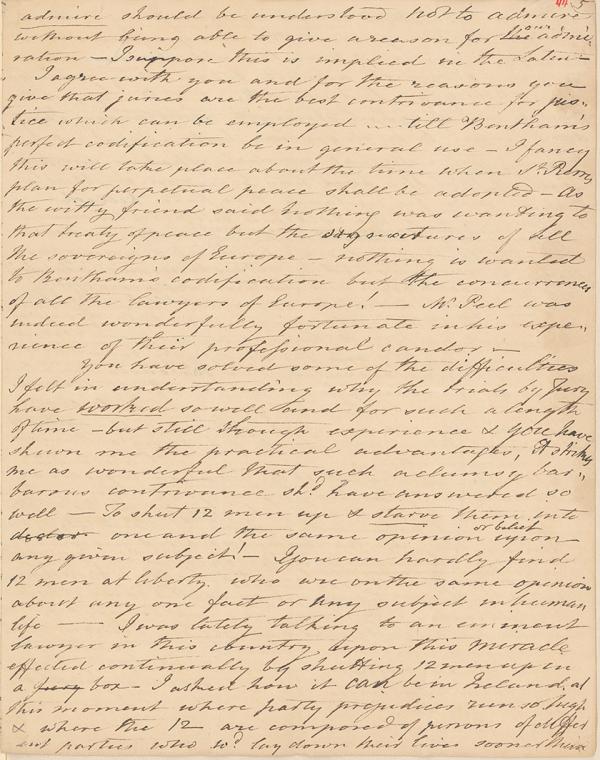 5
admire should be understood not to admire
without being able to give a reason for the admi-
ration – I suppose this is implied in the Latin –
I agree with you and for the reasons you
give that juries are the best contrivance for jus-
tice which can be employed ... till Bentham's
perfect codification be in general use – I fancy
this will take place about the time when St. Pierre's
plan for perpetual peace shall be adopted – As
the witty friend said nothing was wanting to
that treaty of peace but the signatures of all
the sovereigns of Europe – nothing is wanted
to Bentham's codification but the concurrence
of all the lawyers of Europe! – Mr. Peel was
indeed wonderfully fortunate in his expe-
rience of their professional candor –
You have solved some of the difficulties
I felt in understanding why the trials by Jury
have worked so well and for such a length
of time – but still though experience & you have
shewn me the practical advantages, it strikes
me as wonderful that such a clumsy bar-
barous contrivance shd. have answered so
well – To shut 12 men up & starve them into
one and the same opinion or belief upon
any given subject! – You can hardly find
12 men at liberty who are on the same opinion
about any one fact or any subject in human
life – I was lately talking to an eminent
lawyer in this country upon this miracle
effected continually by shutting 12 men up in
a jury box – I asked how it can be in Ireland at
this moment where party prejudices run so high
& where the 12 are composed of persons of differ
ent parties who wd. lay down their lives sooner than